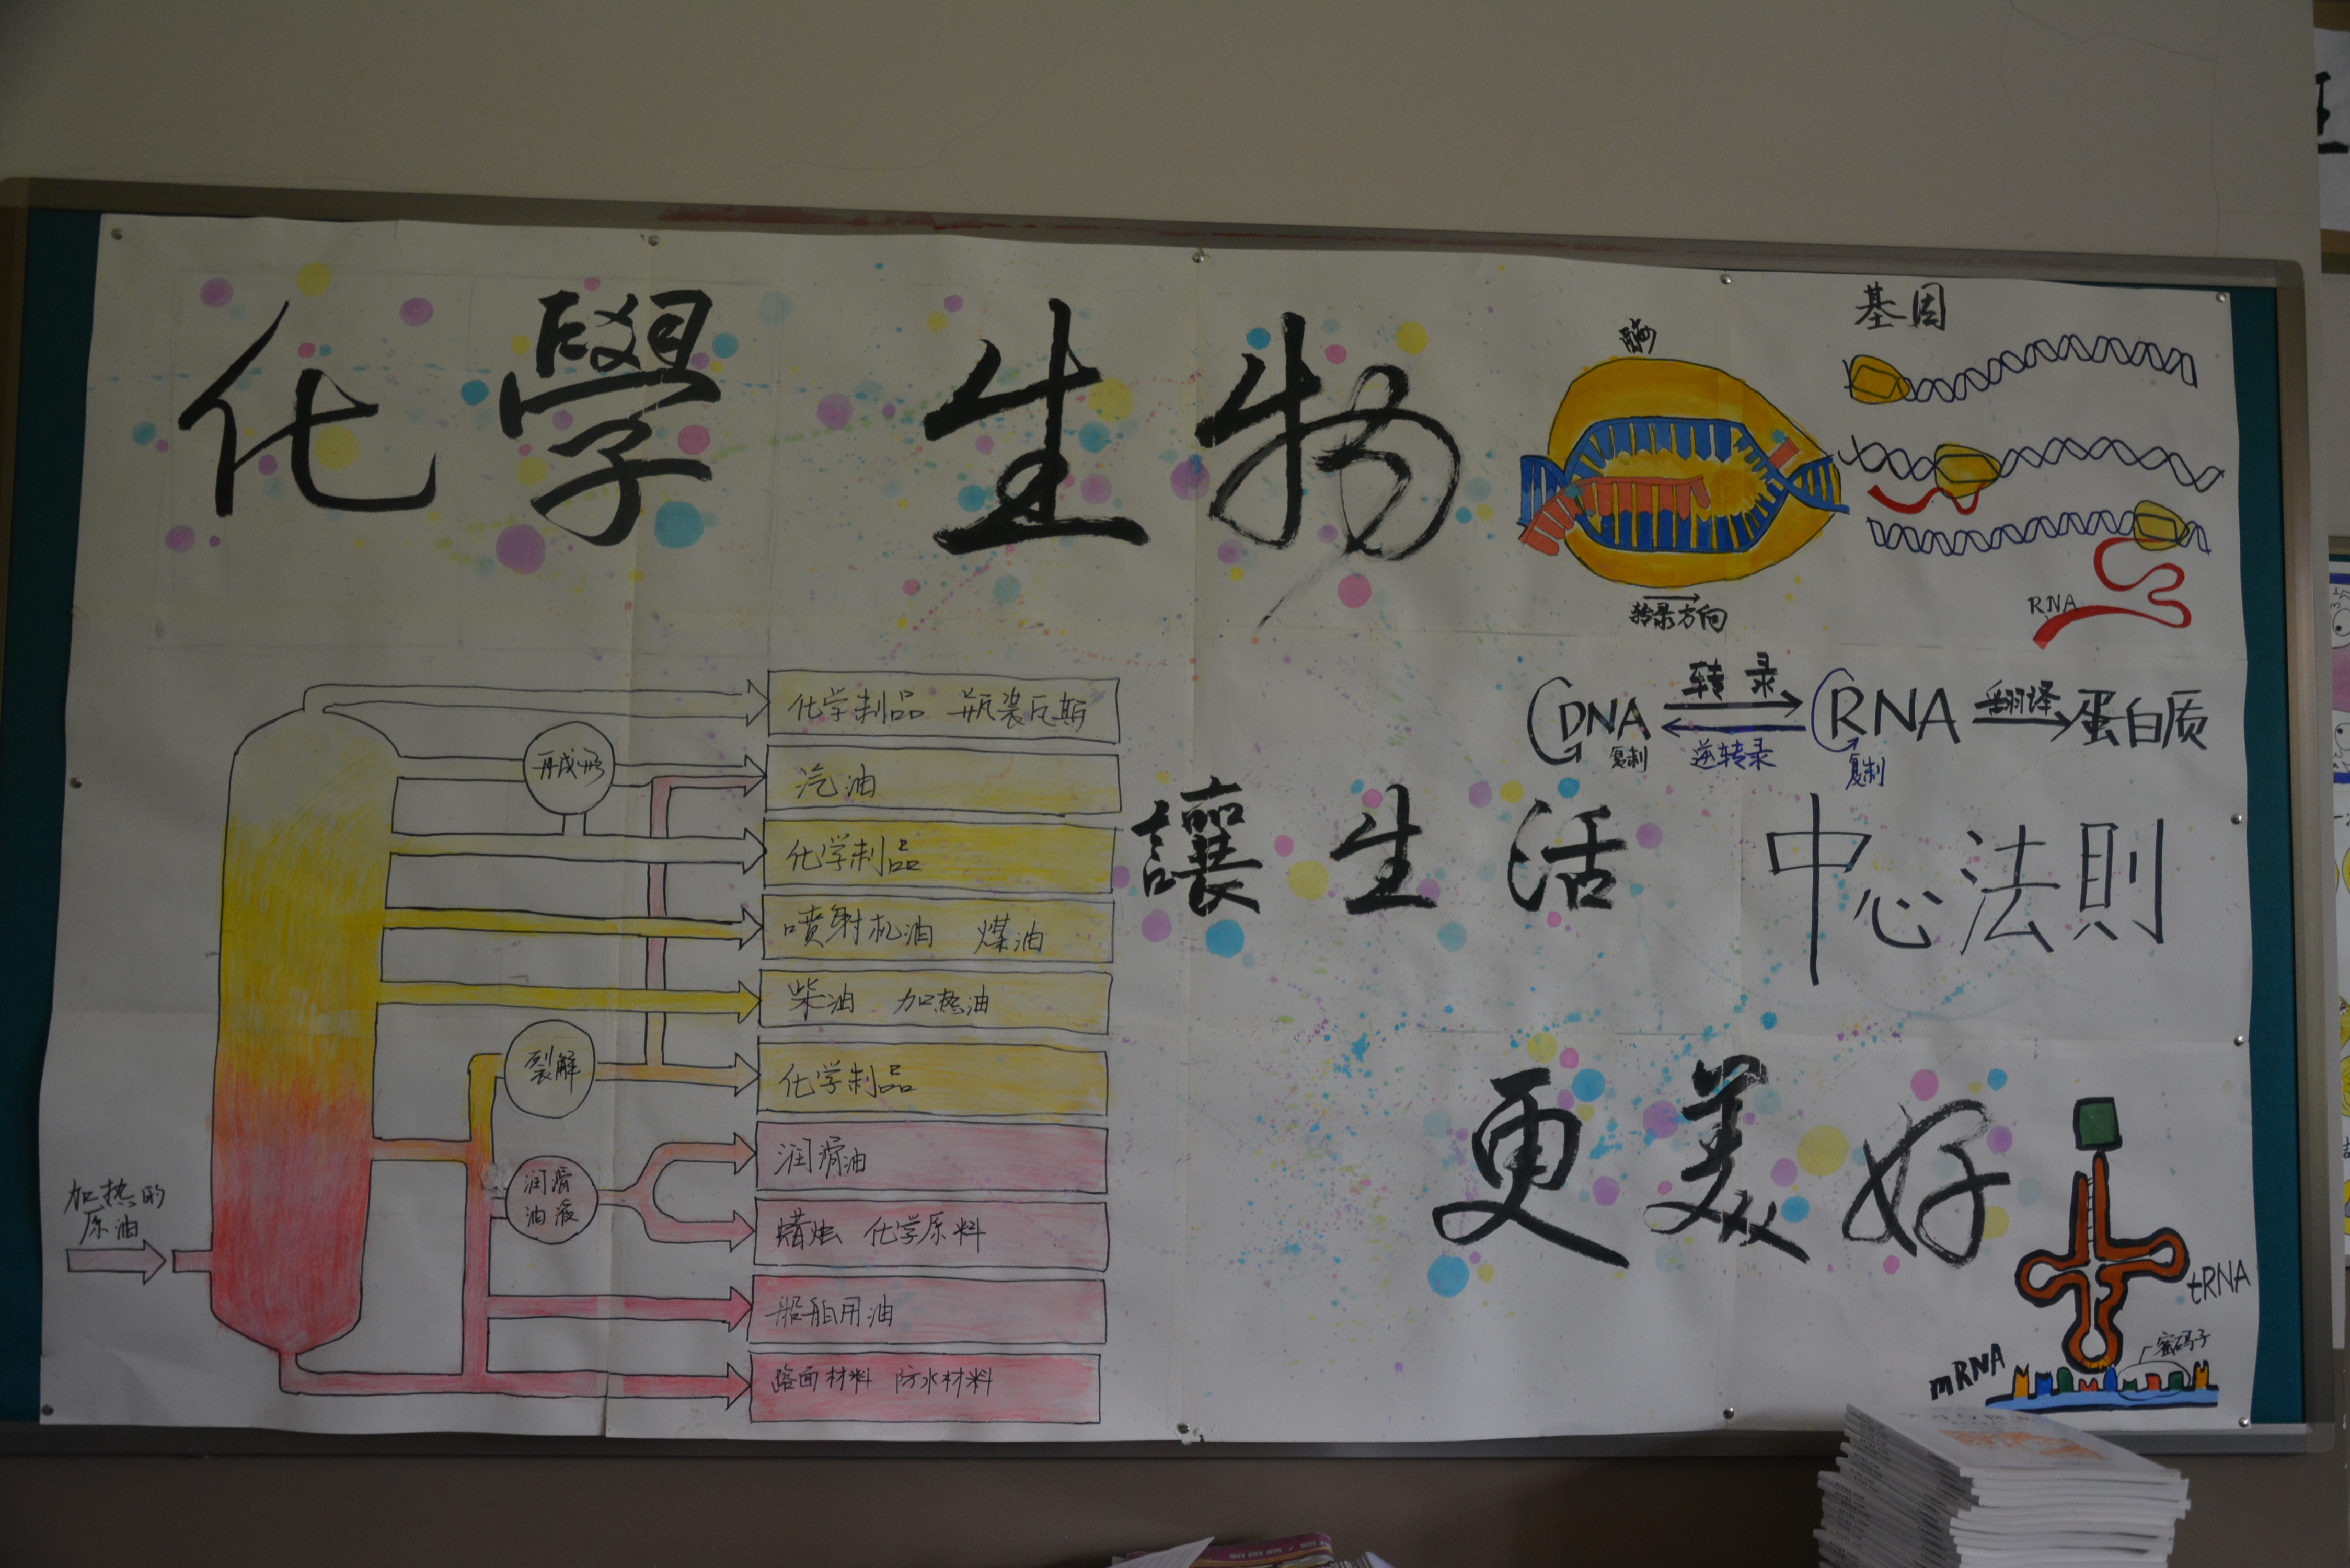 化學 生物
基因
酶
转录方向
RNA
DNA 转录 RNA 翻译 蛋白质
复制 逆转录 复制
讓生活
中心法則
更美好
tRNA
密码子
mRNA
加热的
原油
再成形
裂解
润滑
油液
化学制品 瓶装瓦斯
汽油
化学制品
喷射机油 煤油
柴油 加热油
化学制品
润滑油
蜡烛 化学原料
船舶用油
路面材料 防水材料